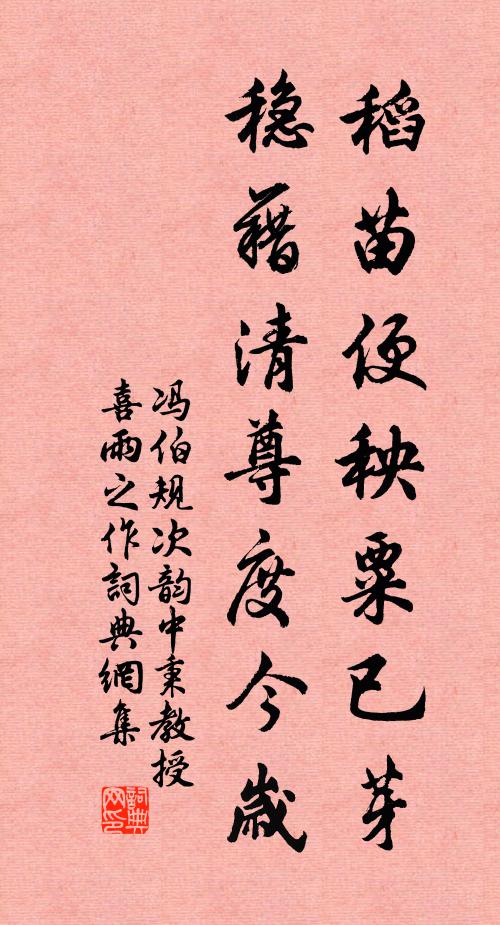 稻苗便秧粟已芽
穏藉清尊度今歳
冯伯规次韵中秉教授
喜雨之作詞典網集
詞典
网印